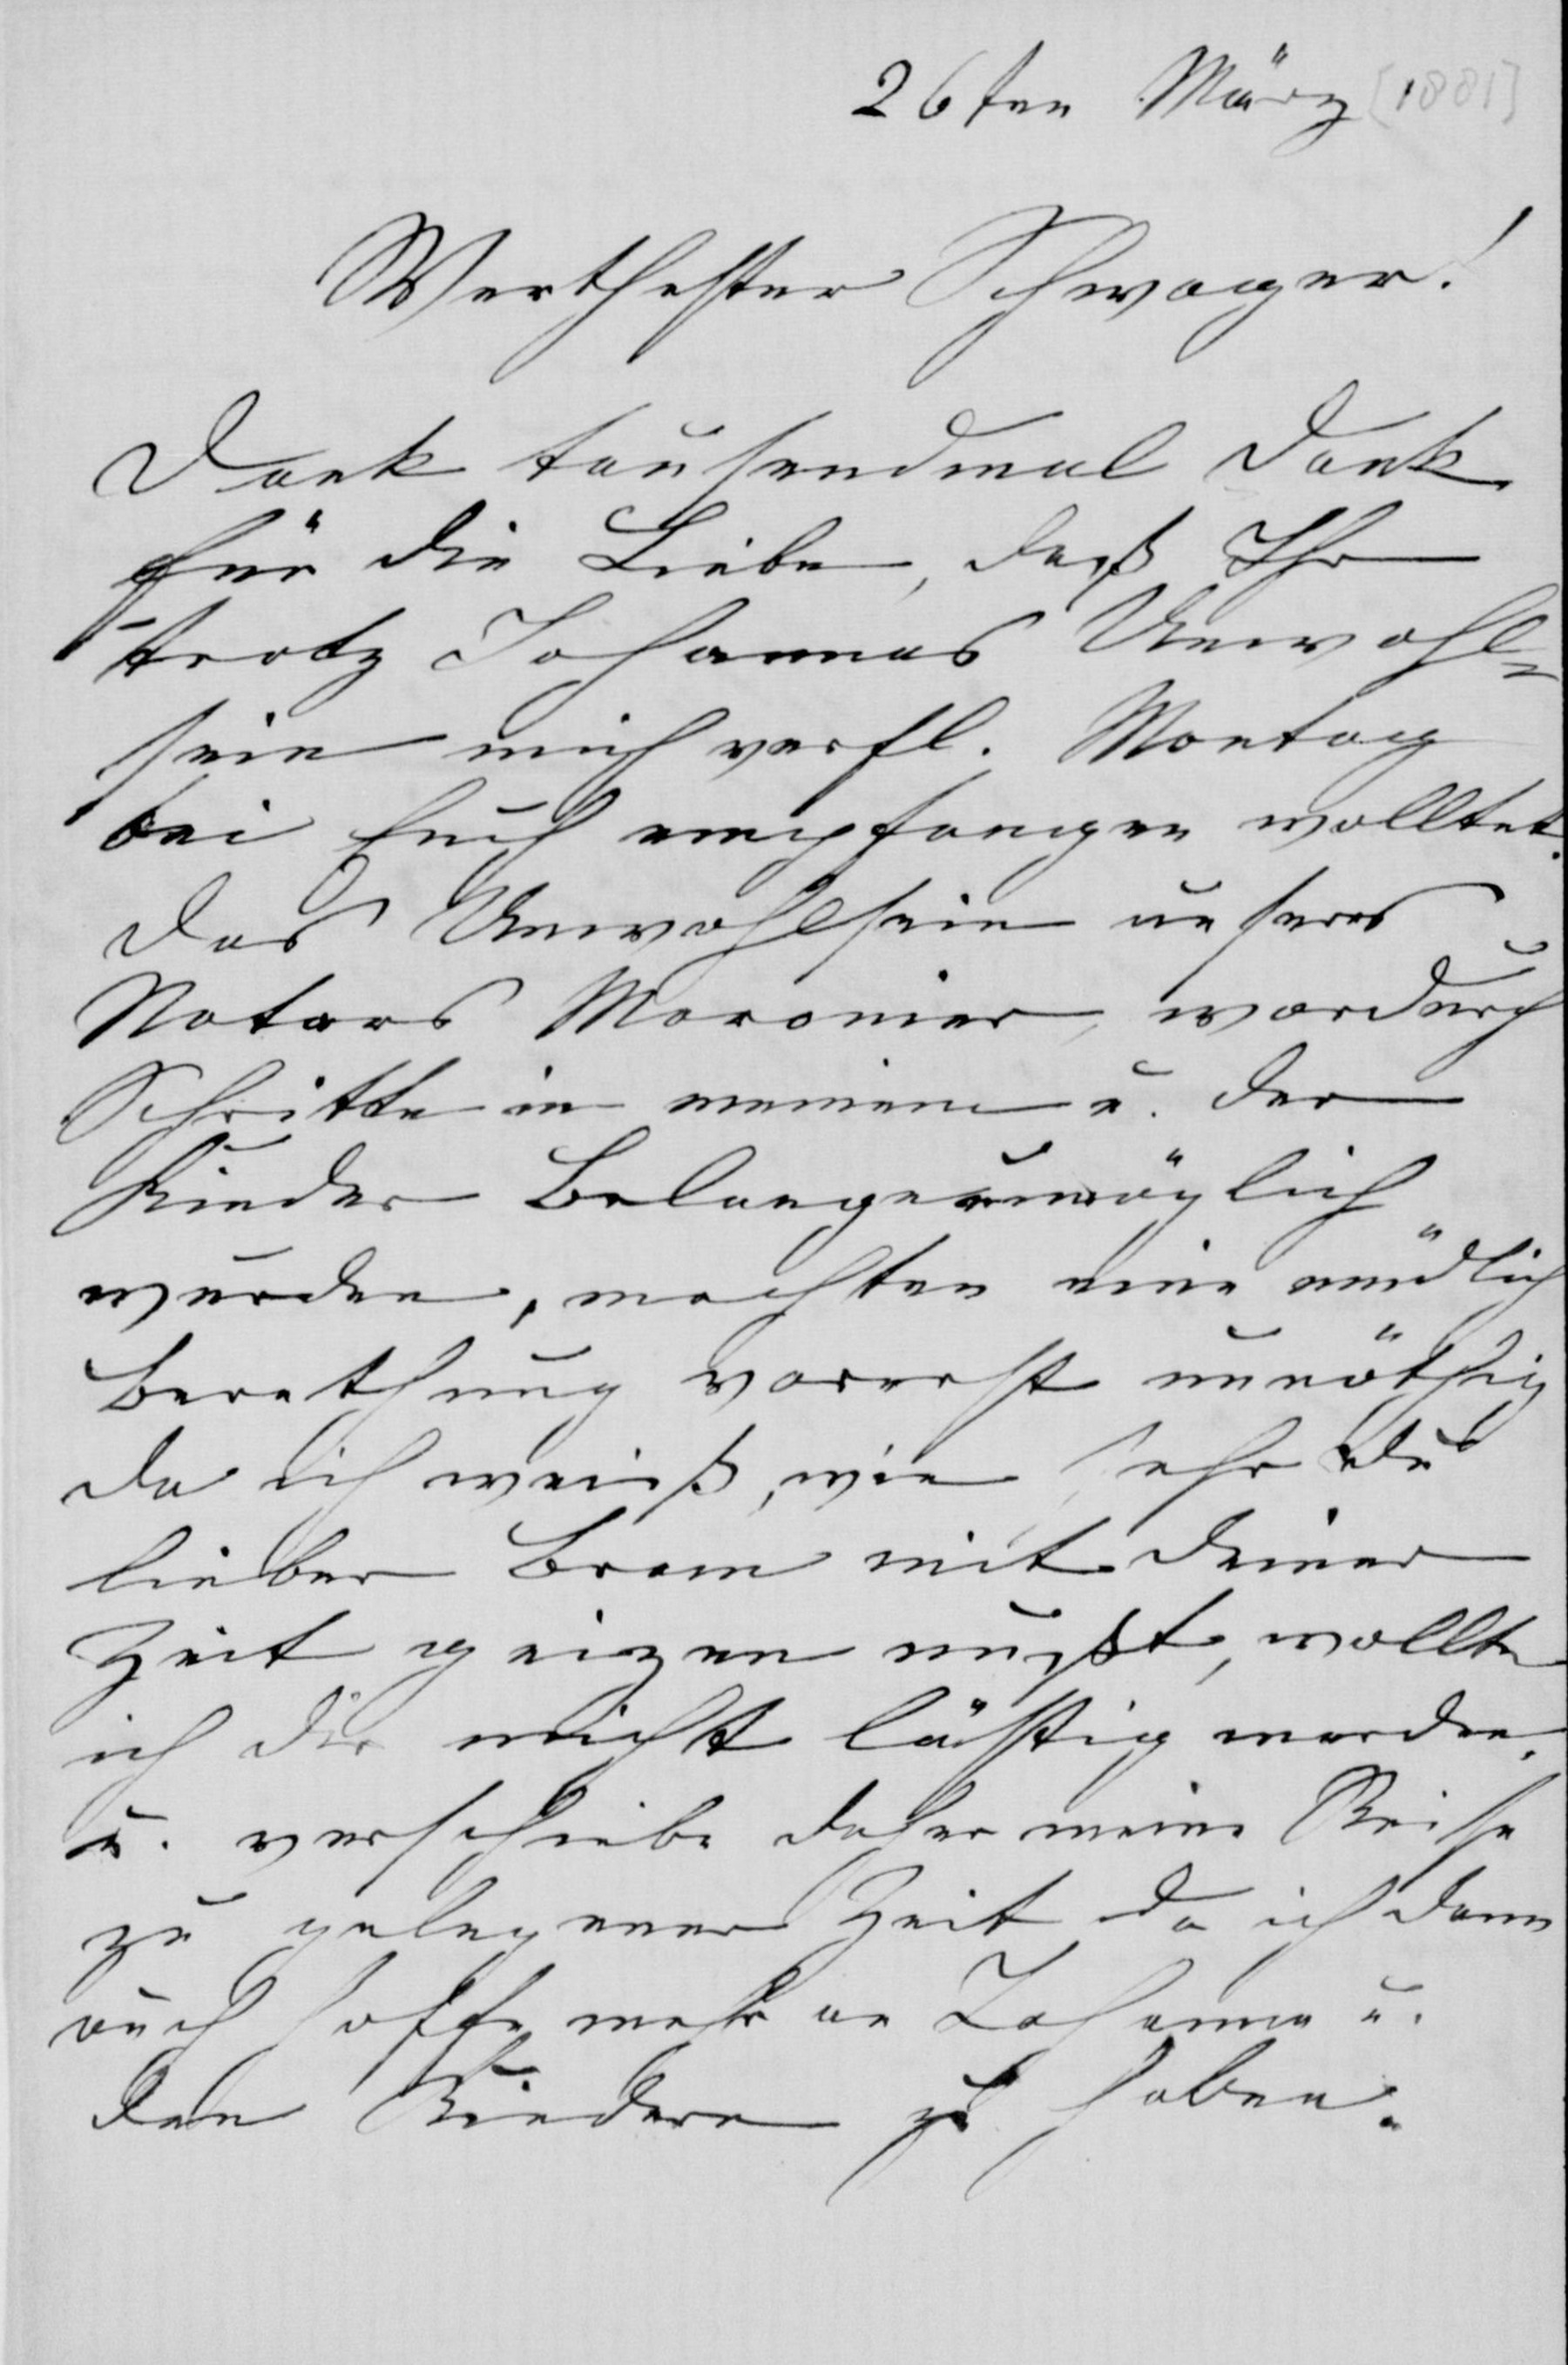 26ten März [1881]
Werthester Schwager!
Dank tausendmal Dank
für die Liebe, daß Ihr
trotz Johannas Unwohl=
sein mich verfl. Montag
bei Euch empfangen wolltet.
Das Unwohlsein unseres
Notars Maronier, wordurch
Schritte in meinem u. der
Kinder Belange unmöglich
wurden, machten eine mündlich
Berathung vorerst unnöthig
da ich weiß, wie sehr Du
lieber Bram mit Deiner
Zeit geizen mußt, wollte
ich Dir nicht lästig werden,
u. verschiebe daher meine Reise
zu gelegener Zeit da ich dann
auch hoffe mehr an Johanna u.
den Kindern zu haben.